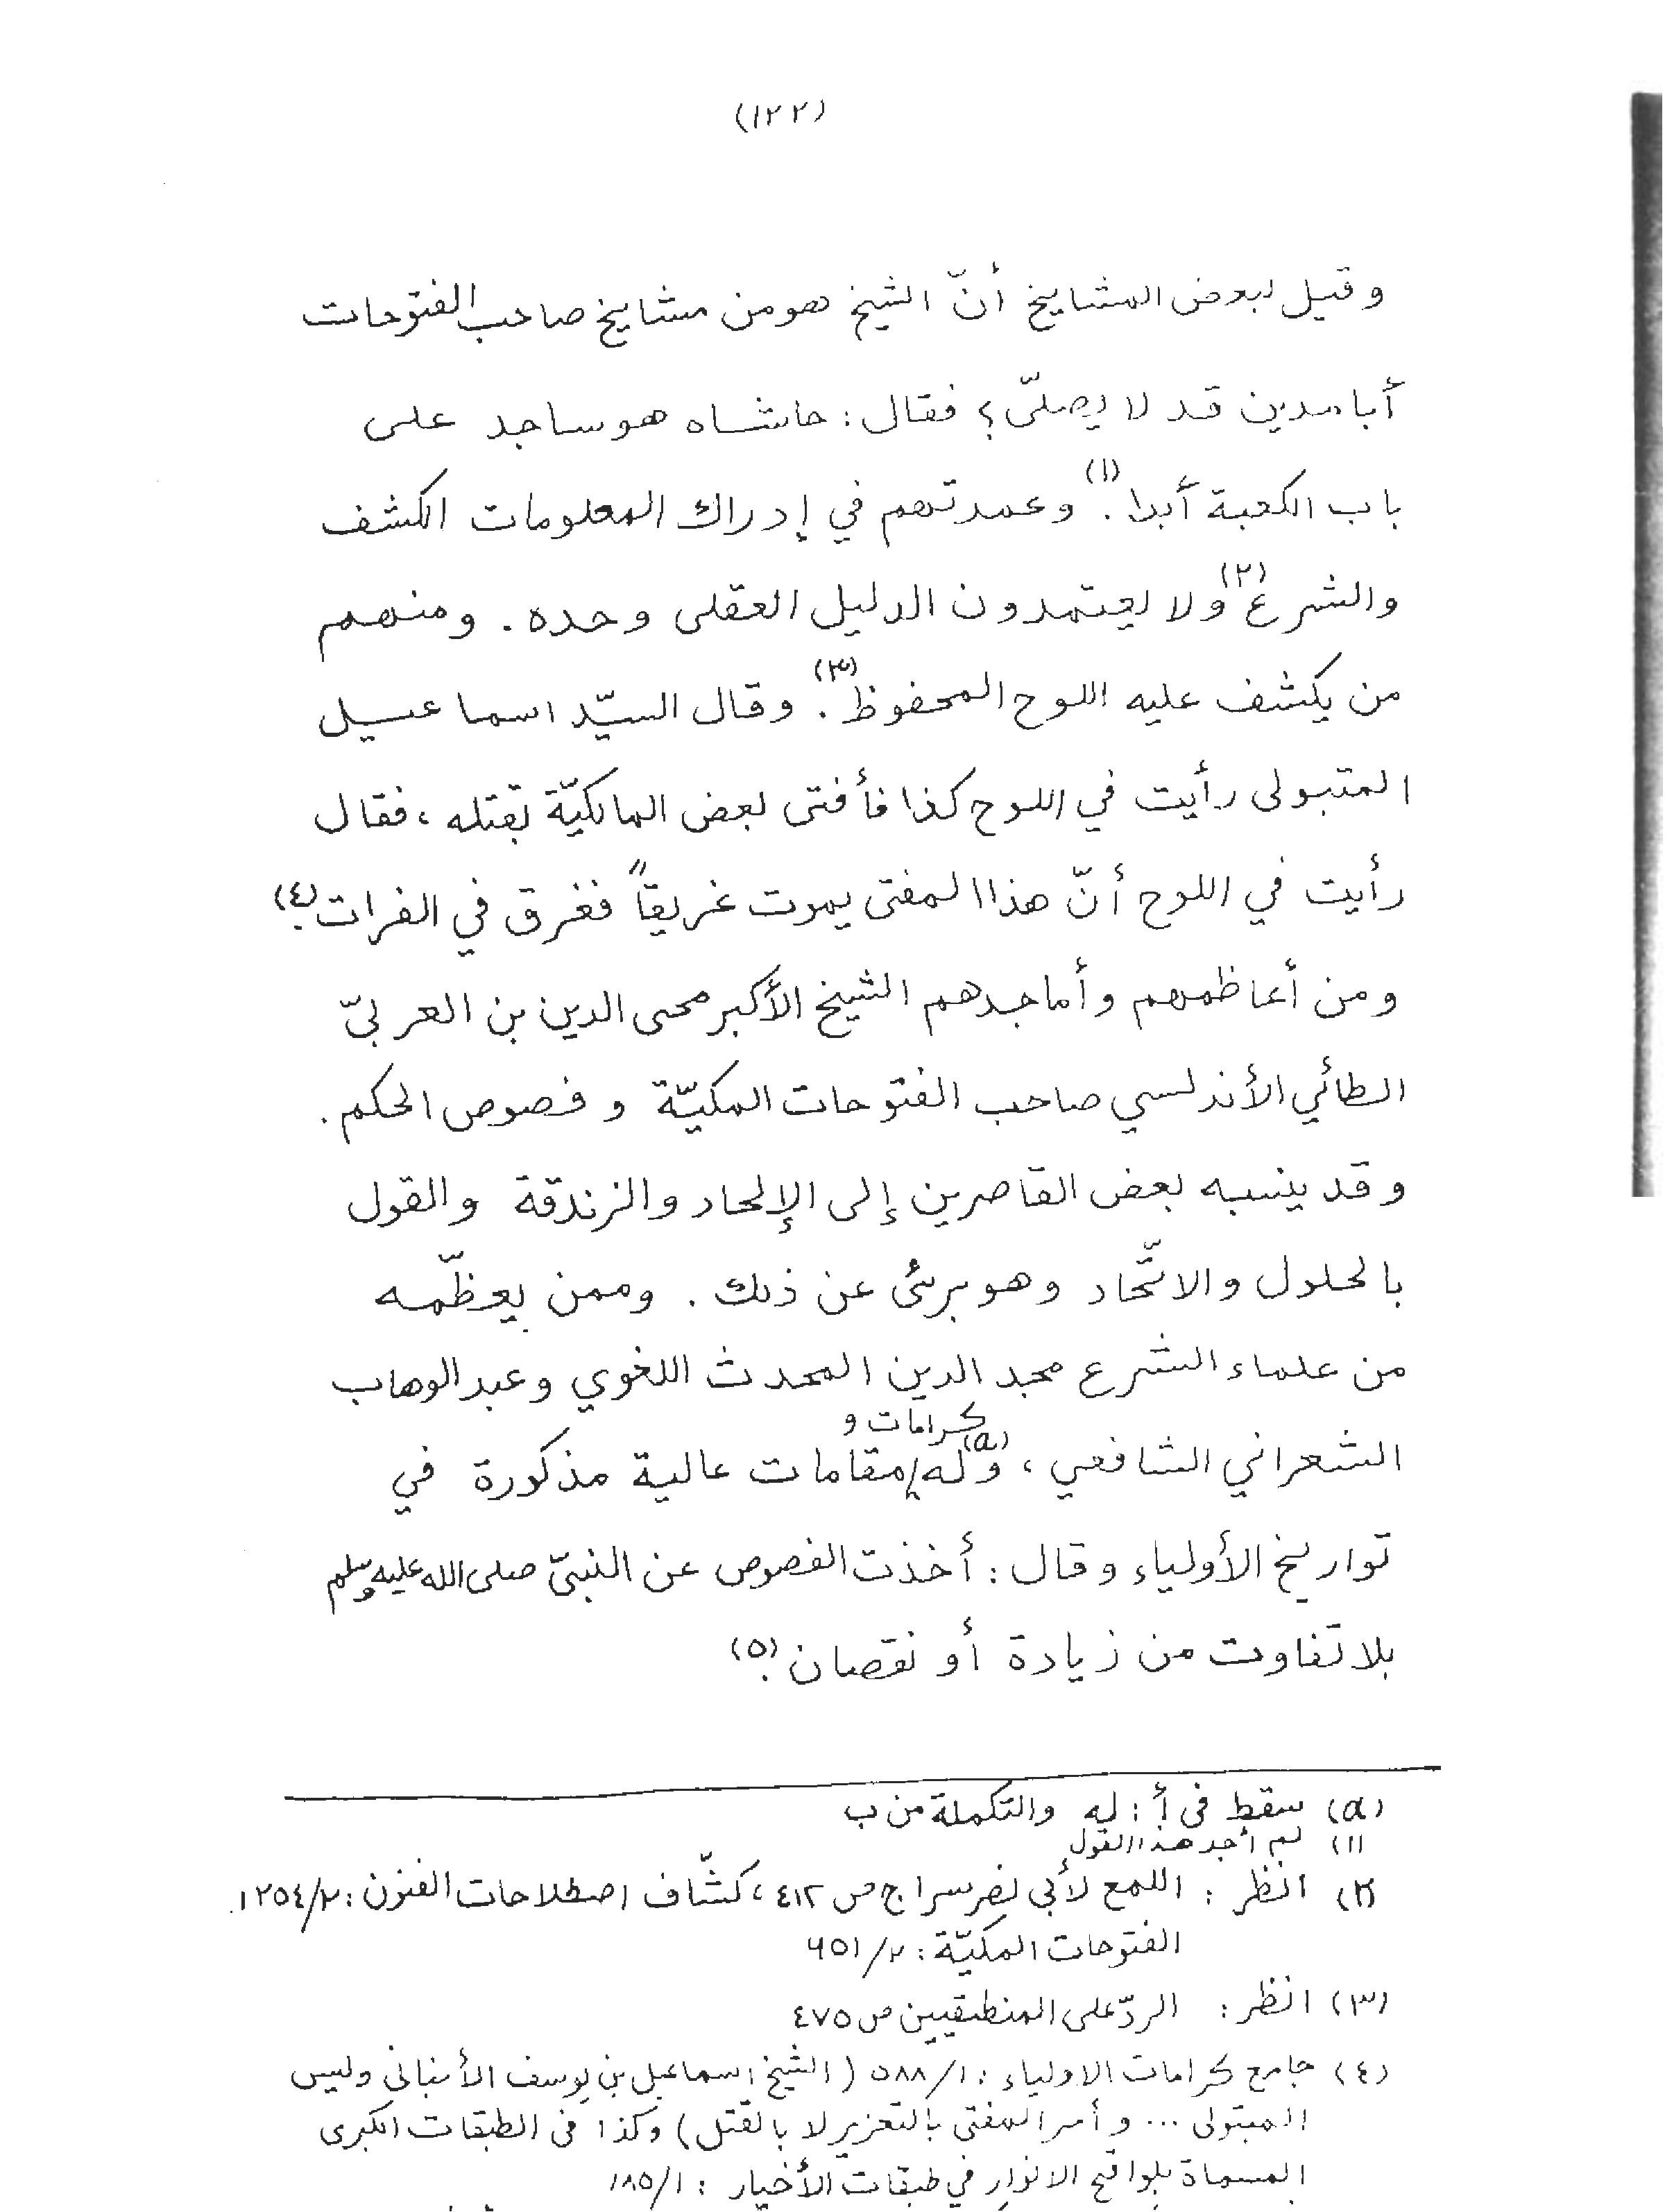 (١٢٢)
وقيل لبعض المشايخ أنّ الشيخ هو من مشايخ صاحب الفتوحات
أبا مدين قد لا يصلّى؟ فقال: حاشاه هو ساجد على
باب الكعبة أبدا.(١) وعمدتهم في إدراك المعلومات الكشف
والشرع(٢) ولا يعتمدون الدليل العقلى وحده. ومنهم
من يكشف عليه اللوح المحفوظ(٣). وقال السيّد اسماعيل
المتبولى رأيت في اللوح كذا فأفتى بعض المالكيّة بقتله، فقال
رأيت في اللوح أنّ هذا المفتى يموت غريقاً فغرق في الفرات.(٤)
ومن أعاظمهم وأماجدهم الشيخ الأكبر محى الدين بن العربيّ
الطائي الأندلسي صاحب الفتوحات المكيّة وفصوص الحكم.
وقد ينسبه بعض القاصرين إلى الإلحاد والزندقة والقول
بالحلول والاتّحاد وهو برئ عن ذلك. وممن يعظّمه
من علماء الشرع مجد الدين المحدث اللغوي وعبد الوهاب
كرامات و
الشعراني الشافعي، وله(a) مقامات عالية مذكورة في
تواريخ الأولياء وقال: أخذت الفصوص عن النبيّ صلى الله عليه وسلم
بلا تفاوت من زيادة أو نقصان.(٥)
(a) سقط فى أ: له والتكملة من ب
(١) لم أجد هذا القول
(٢) انظر: اللمع لأبي نصر سراج ص ٤١٢، كشّاف اصطلاحات الفنون: ٢/١٢٥٤.
الفتوحات المكيّة: ٢/٦٥١
(٣) انظر: الردّ على المنطقيين ص ٤٧٥
(٤) جامع كرامات الاولياء: ١/٥٨٨ (الشيخ اسماعيل بن يوسف الأنبانى وليس
المبتولى ... وأمر المفتى بالتعزير لا بالقتل) وكذا فى الطبقات الكبرى
المسماة بلواقح الانوار في طبقات الأخيار: ١/١٨٥